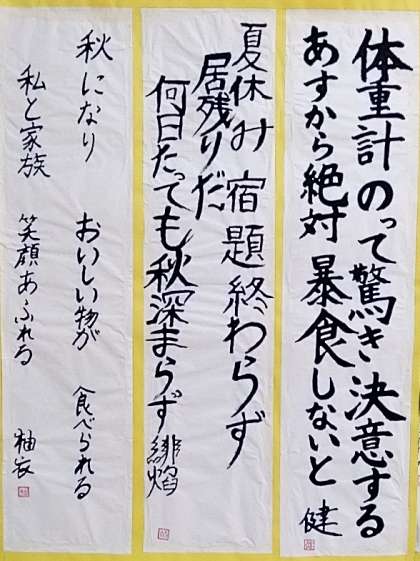 体重計のって驚き決意する
あすから絶対暴食しないと
健
夏休み宿題終わらず
居残りだ
何日たっても秋深まらず
緋焰
秋になり おいしい物が 食べられる
私と家族 笑顔あふれる
柚衣